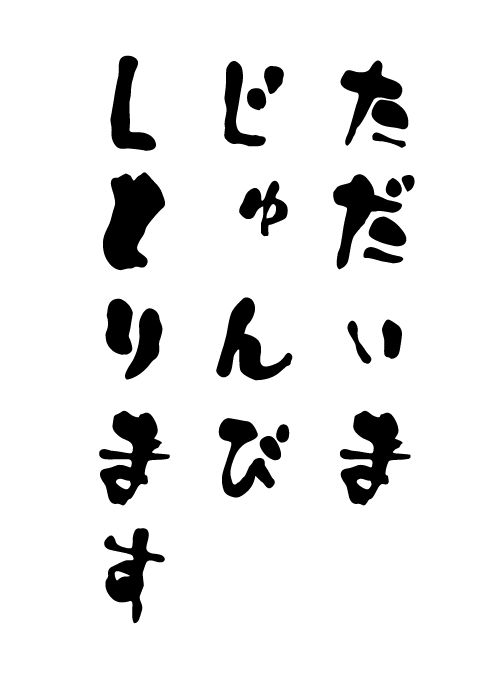 ただいま
じゅんび
しとります